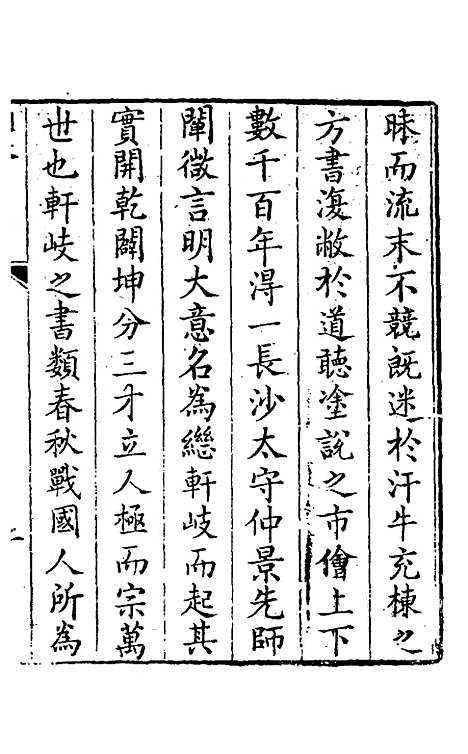 昧而流末不競旣迷於汗牛充棟之
方書復敝於道聽塗說之市儈上下
數千百年得一長沙太守仲景先師
闡微言明大意名為繼軒岐而起其
實開乾闢坤分三才立人極而宗萬
世也軒岐之書類春秋戰國人所為